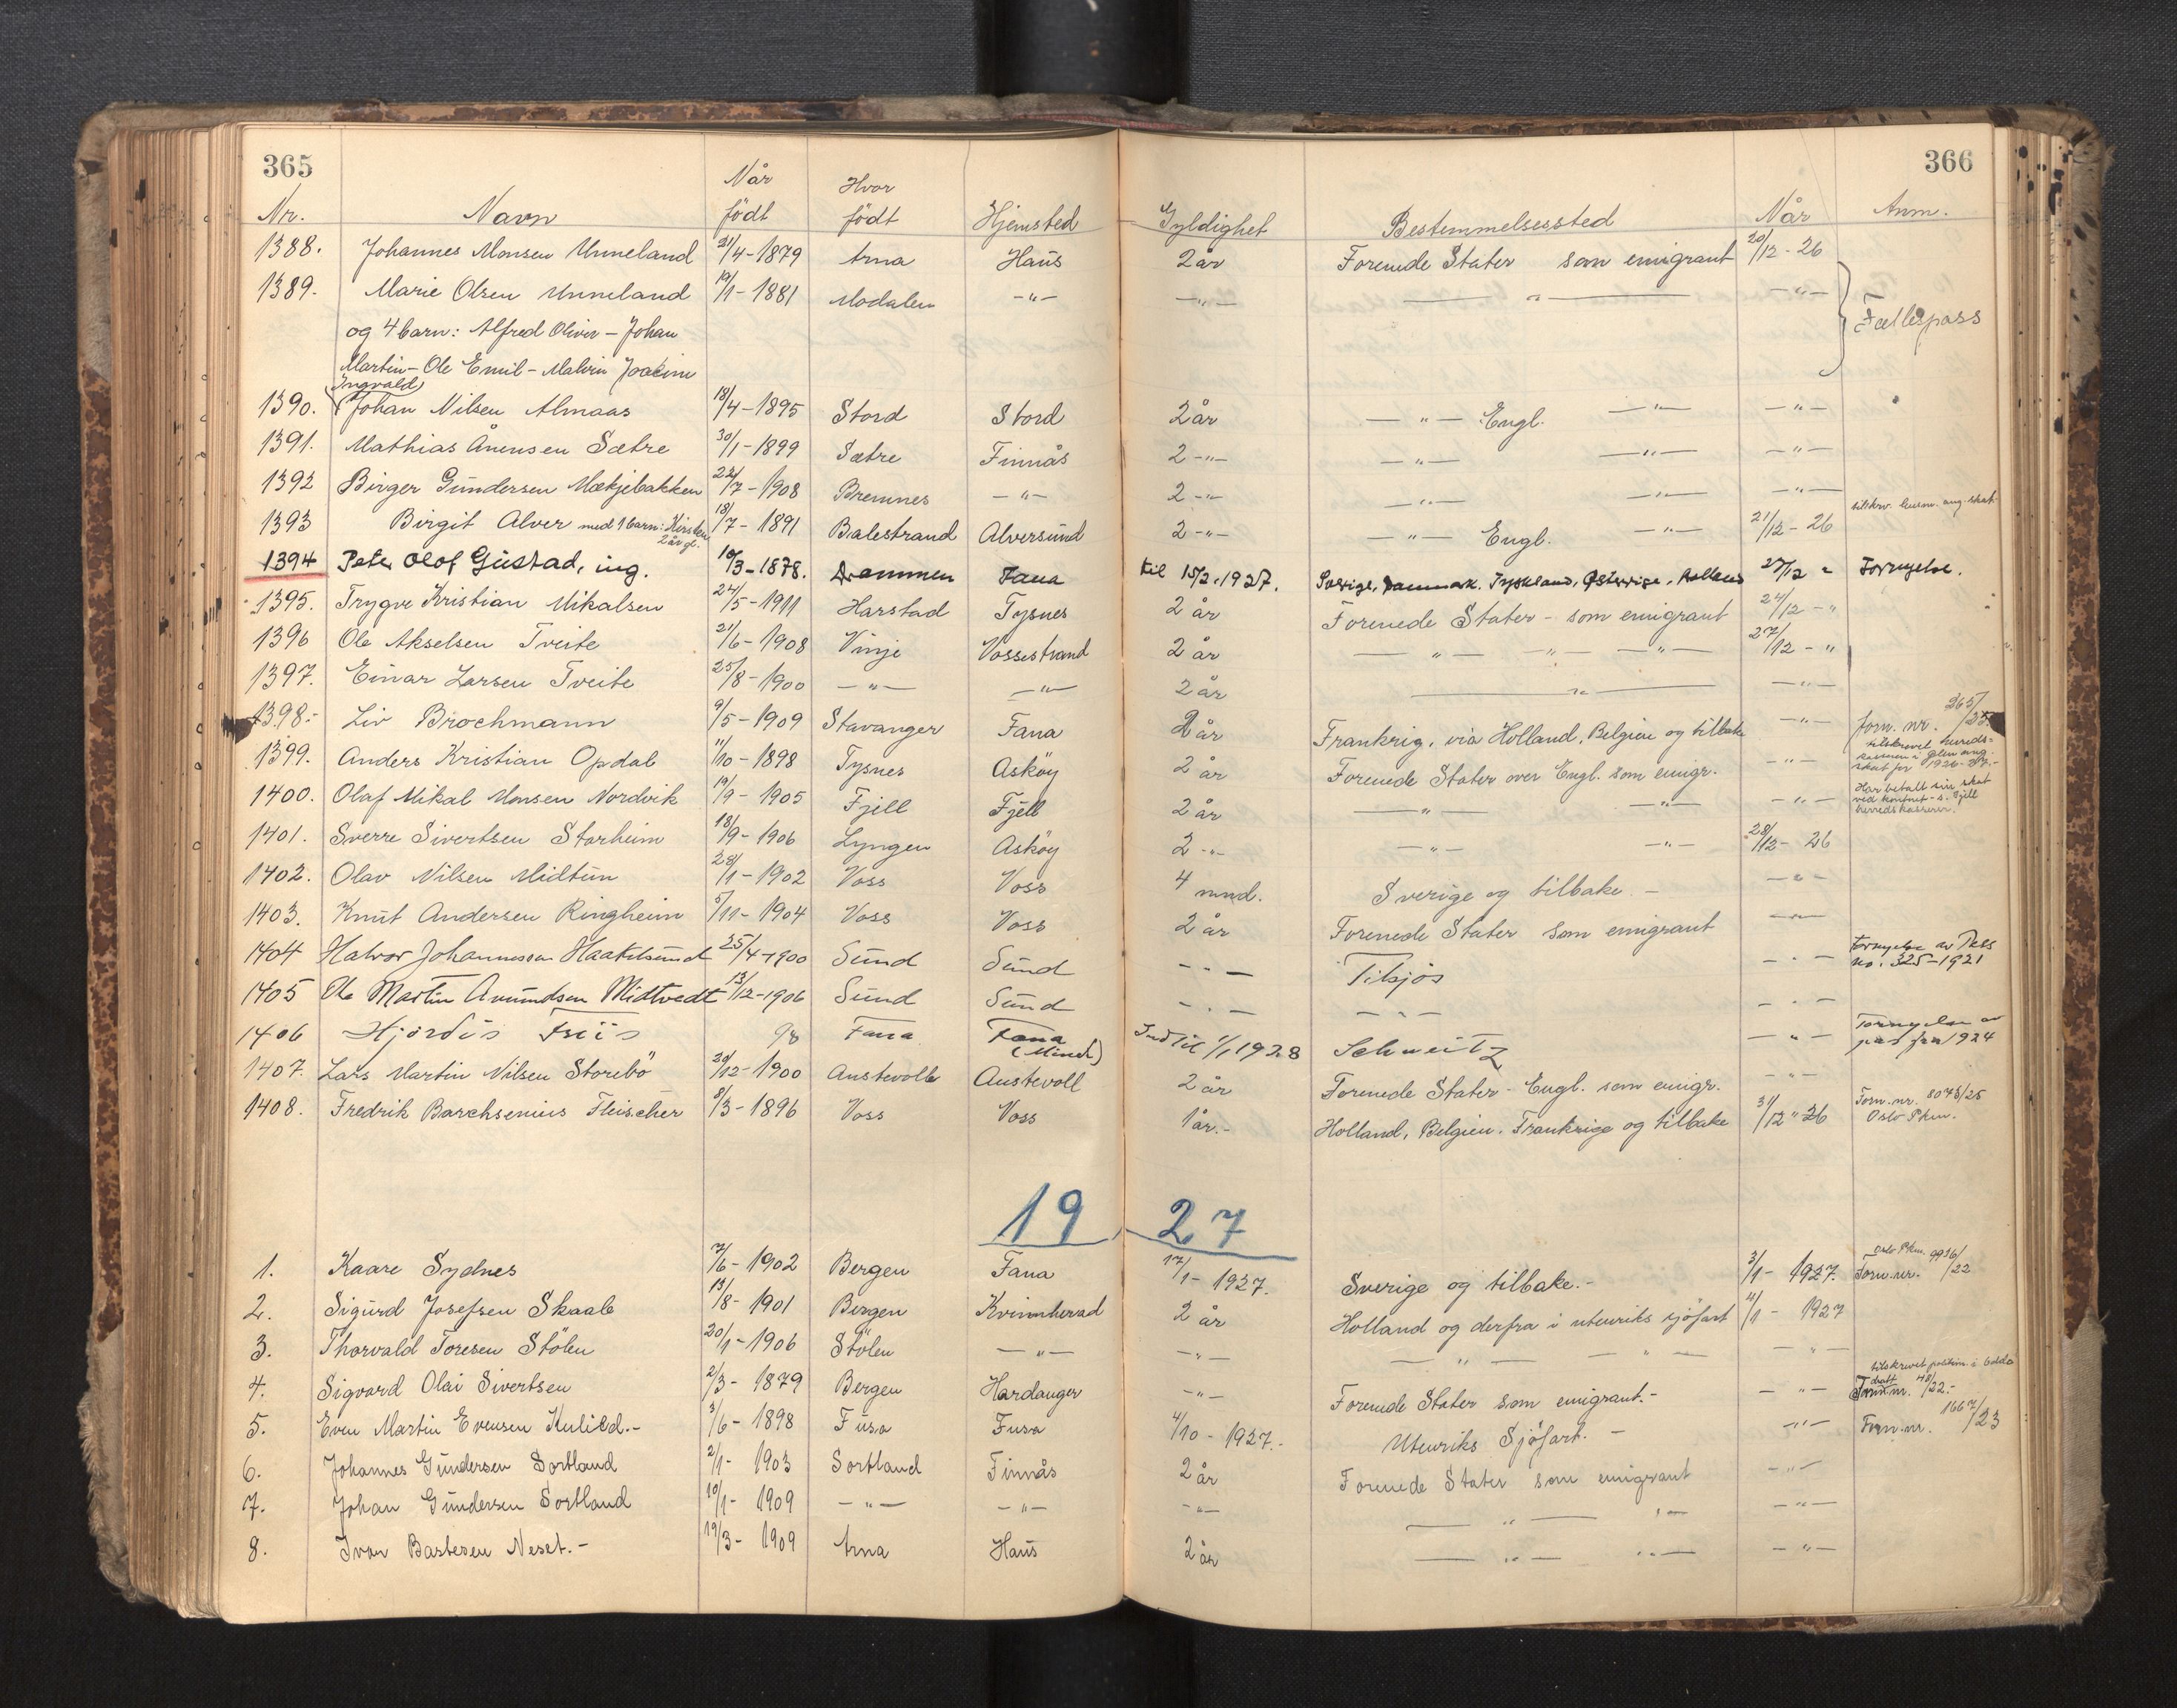 365 366
Nr. Navn Når født Hvor født Hjemsted Gyldighet Bestemmelsessted Når Anm.
1388. Johannes Monsen Unneland 21/4-1879 Arna Haus 2 år Forenede Stater som emigrant 20/12-26
1389. Marie Olsen Unneland 19/1-1881 Modalen -"- -"- -"- -"- Fællespass
og 4 barn: Alfred Oliver - Johan
Martin - Ole Emil - Malvin Joakim
Ingvald
1390. Johan Nilsen Almaas 18/4-1895 Stord Stord 2 år -"- Engl. -"- -"-
1391. Mathias Ånensen Sætre 30/1-1899 Sætre Finnås 2 -"- -"- -"- -"-
1392 Birger Gundersen Mækjebakken 22/7-1908 Bremnes -"- 2 -"- -"- -"- -"-
1393 Birgit Alver med 1 barn: Kirsten 2 år gl. 18/7-1891 Balestrand Alversund 2 -"- -"- Engl. -"- 21/12-26 tilskrev. lensm. ang. skat
1394 Peter Olof Gustad, ing. 10/3-1878. Drammen Fana til 15/2.1927. Sverige, Danmark. Tyskland, Østerrige, Holland 27/12 " Fornyelse.
1395. Trygve Kristian Mikalsen 24/5-1911 Harstad Tysnes 2 år Forenede Stater - som emigrant 24/12 - "
1396 Ole Akselsen Tveite 21/6-1908 Vinje Vossestrand 2 år -"- -"- -"- 27/12 - "
1397. Einar Larsen Tveite 25/8-1900 -"- -"- 2 år -"- -"-
1398.- Liv Brochmann 9/5-1909 Stavanger Fana 2 år Frankrig, via Holland, Belgien og tilbake -"- forn. nr. 265/25.
1399. Anders Kristian Opdal 11/10-1898 Tysnes Asköy 2 år Forenede Stater over Engl. som emigr. -"- tilskrevet herreds-
kasseren i ang.
skat for 1926-27.-
1400. Olaf Mikal Monsen Nordvik 19/9-1905 Fjell Fjell 2 år -"- -"- -"- Har betalt sin skat
ved kontnt - s. Fjell
herredskasserer.
1401. Sverre Sivertsen Storheim 18/9-1906 Lyngen Asköy 2 -"- -"- -"- 28/12-26
1402. Olav Nilsen Midtun 28/1-1902 Voss Voss 4 mnd. Sverige og tilbake - -"-
1403. Knut Andersen Ringheim 5/11-1904 Voss Voss 2 år Forenede Stater som emigrant -"-
1404 Halvor Johannessen Haakelsund 25/4-1900 Sund Sund -"- Tilsjös -"- Fornyelse av Pass
no. 325-1921
1405 Ole Martin Amundsen Midtvedt 13/12-1906 Sund Sund -"- -"- -"-
1406 Hjördis Friis 98 Fana Fana (Minde) Indtil 1/1 1928 Schweitz -"- Fornyelse av
pas fra 1924
1407. Lars Martin Nilsen Storebö 20/12-1900 Austevoll Austevoll 2 år Forenede Stater - Engl. som emigr. -"-
1408. Fredrik Barchsenius Fleischer 8/3-1896 Voss Voss 1 år.- Holland, Belgien, Frankrige og tilbake 31/12 "26 Forn. nr. 8075/25
Oslo Pkm.
19 27
1. Kaare Sydnes 7/6-1902 Bergen Fana 17/1-1927. Sverige og tilbake.- 3/1-1927. Oslo Pkm. Forn. nr. 9936/22
2. Sigurd Josefsen Skaale 13/8-1901 Bergen Kvinnherad 2 år Holland og derfra i utenriks sjöfart 4/1-1927
3. Thorvald Toresen Stölen 20/1-1906 Stölen -"- -"- -"- -"- -"-
4. Sigvard Olai Sivertsen 2/3-1879 Bergen Hardanger -"- Forenede Stater som emigrant.- -"- tilskrevet politim. i Odda
48/22.-
5. Even Martin Evensen Kulild.- 3/6-1898 Fusa Fusa 4/10-1927.- Utenriks Sjöfart.- -"- Forn. nr. 1667/23
6. Johannes Gundersen Sortland 2/1-1903 Sortland Finnås 2 år Forenede Stater som emigrant -"-
7. Johan Gundersen Sortland 10/1-1909 -"- -"- -"- -"- "- -"-
8. Ivar Bastesen Neset.- 19/3-1909 Arna Haus 2 år -"- -"- -"-